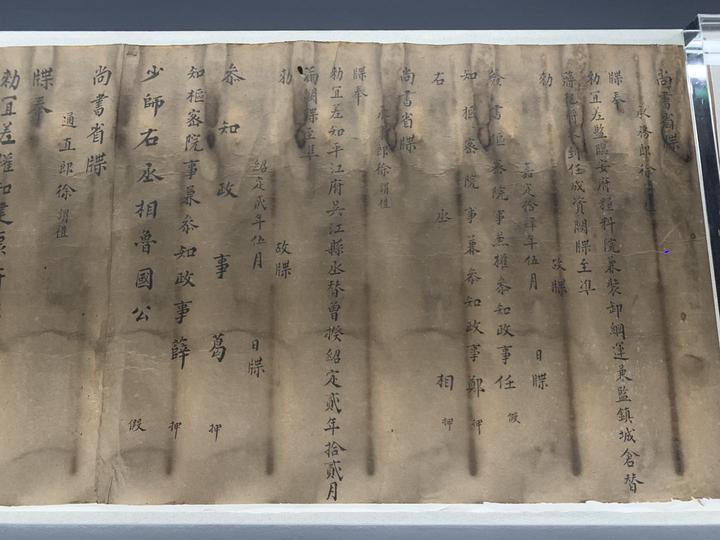 尚書省牒
承務郎徐謂禮
牒奉
勅宜差監臨安府糧料院兼裝卸綱運兼監鎮城倉替
任成資闕牒至準
勅
故牒
嘉定拾肆年伍月 日牒
簽書樞密院事兼權參知政事任 假
知樞密院事兼參知政事鄭 押
右丞相 押
尚書省牒
承事郎徐謂禮
牒奉
勅宜差知平江府吳江縣丞替曾揆紹定貳年拾貳月
滿闕牒至準
勅
故牒
紹定貳年伍月 日牒
參知政事葛 押
知樞密院事兼參知政事薛 押
少師右丞相魯國公 假
尚書省牒
通直郎徐謂禮
牒奉
勅宜差權知建康府